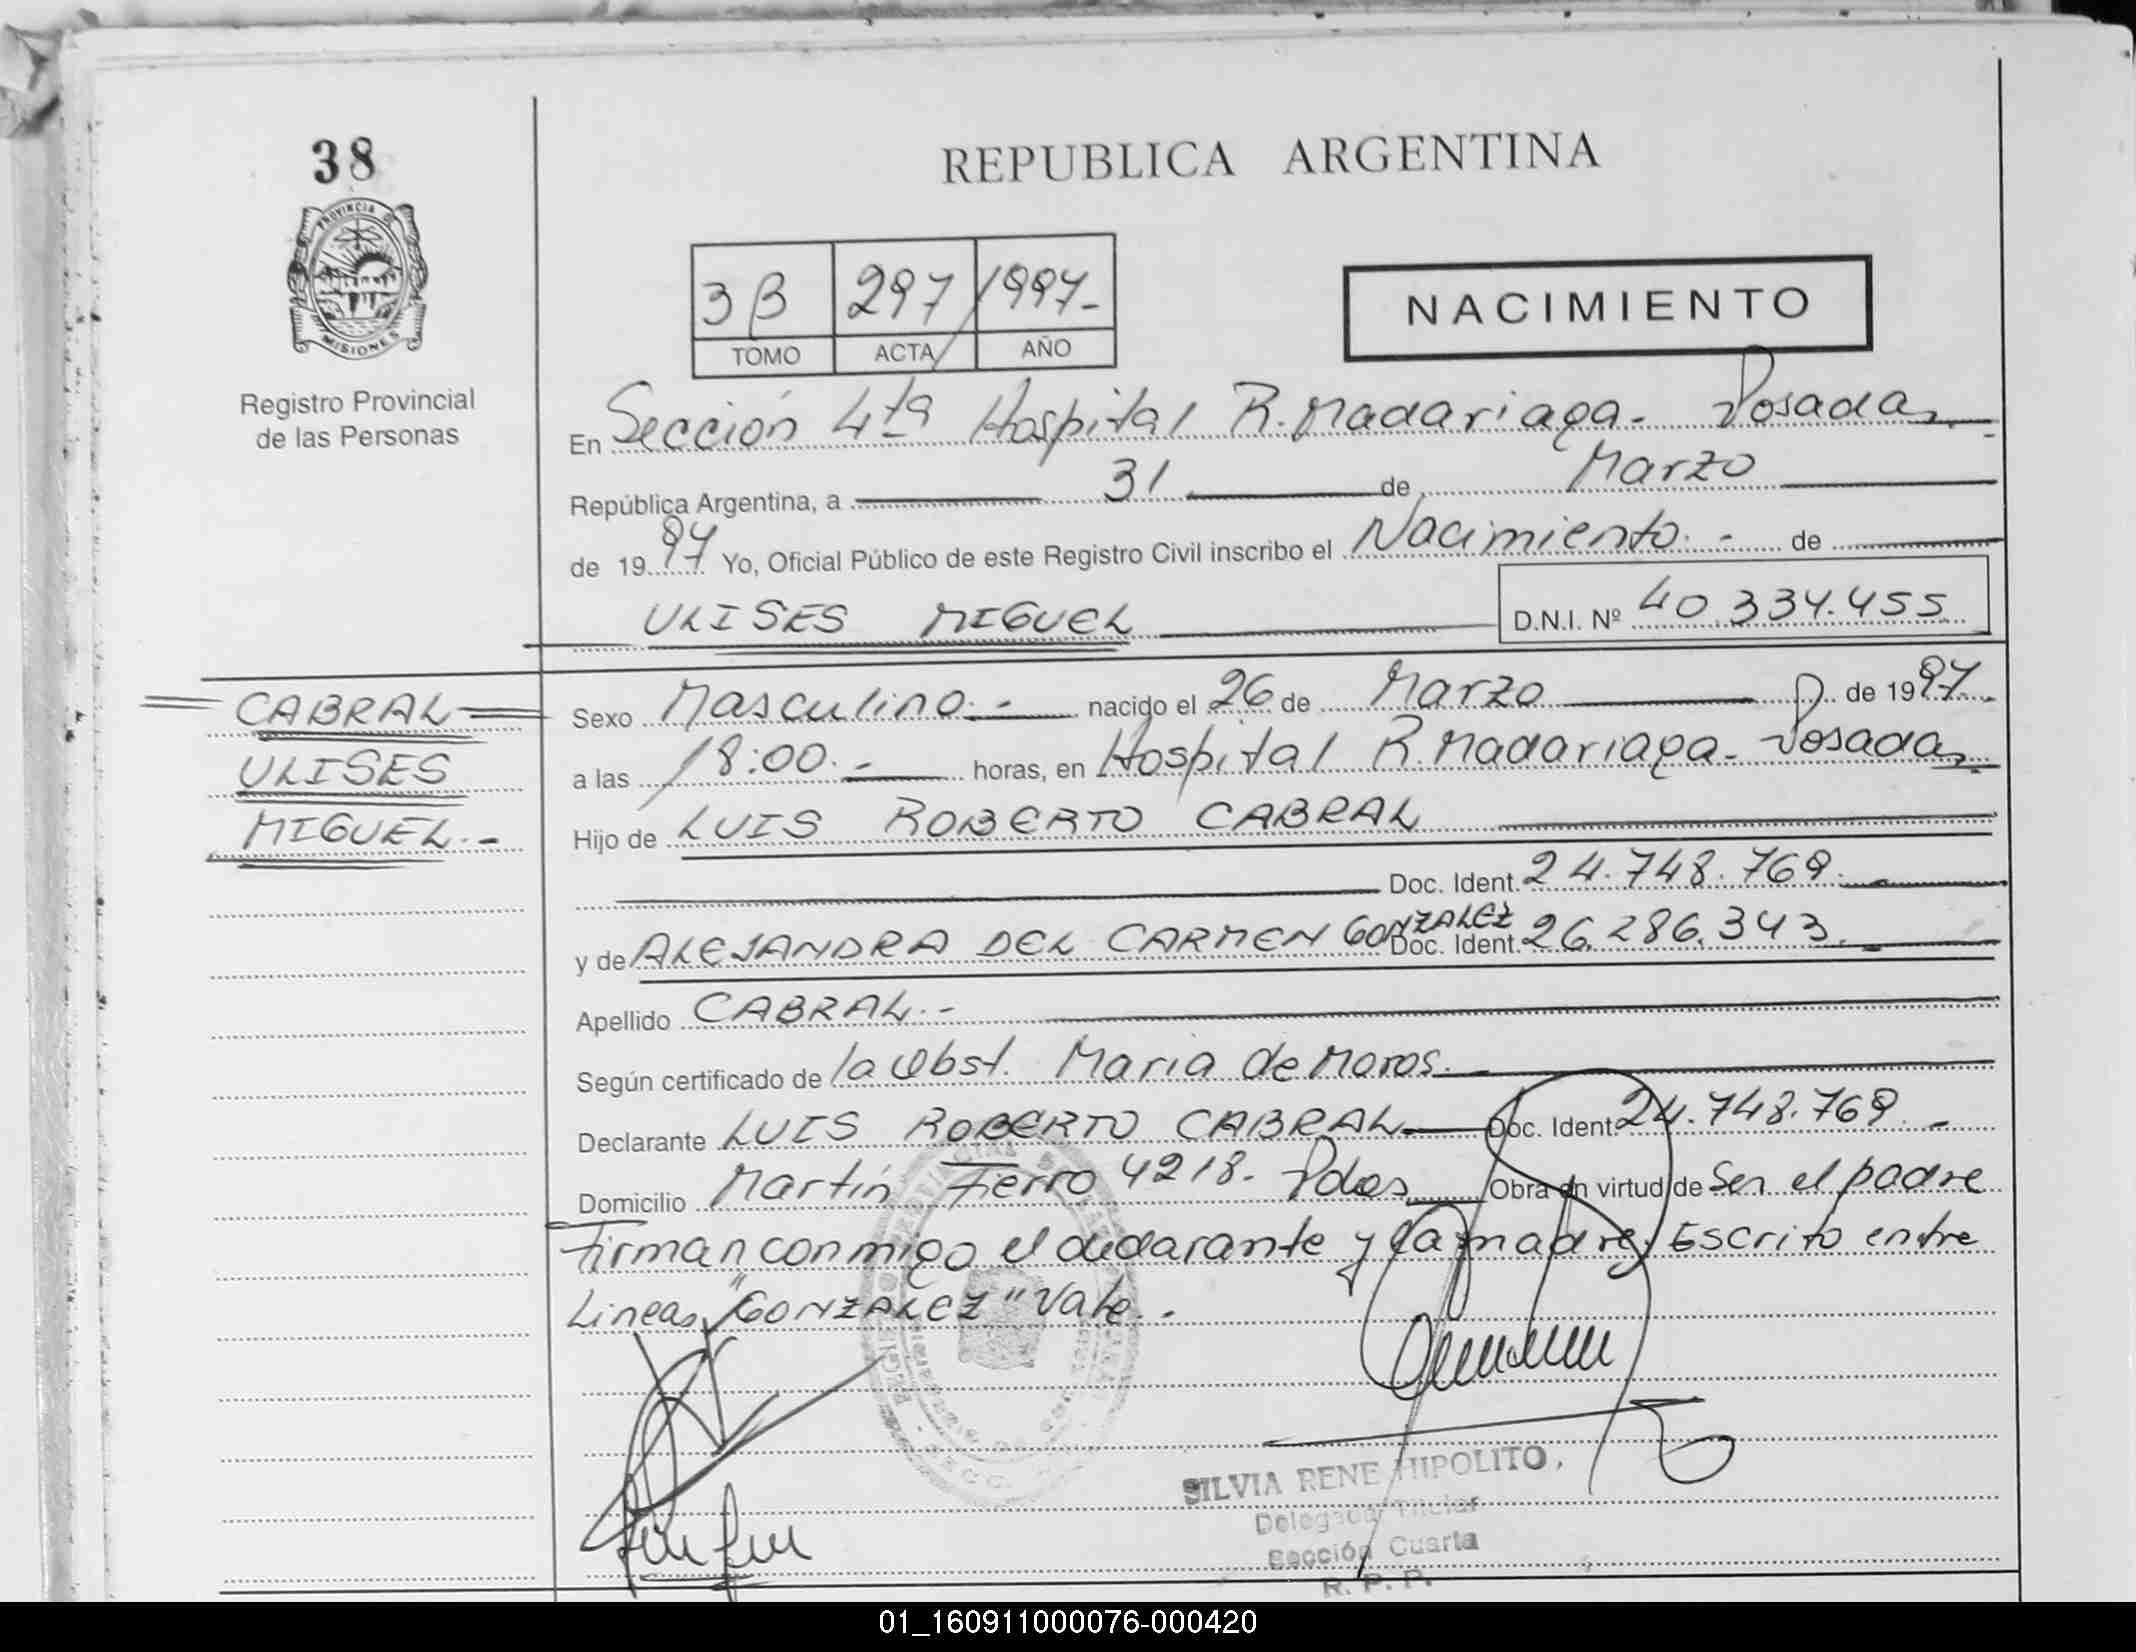 38
PROVINCIA DE
MISIONES
Registro Provincial
de las Personas
REPUBLICA ARGENTINA
3B 297 1997-
TOMO ACTA AÑO
NACIMIENTO
En Sección 4ta Hospital R. Madariaga - Posadas
República Argentina, a 31 de Marzo
de 1997 Yo, Oficial Público de este Registro Civil inscribo el Nacimiento.- de
ULISES MIGUEL D.N.I. Nº 40.334.455
CABRAL
ULISES
MIGUEL.-
Sexo Masculino.- nacido el 26 de Marzo de 1997.
a las 18:00.- horas, en Hospital R. Madariaga - Posadas
Hijo de LUIS ROBERTO CABRAL
Doc. Ident. 24.748.769.-
y de ALEJANDRA DEL CARMEN GONZALEZ Doc. Ident. 26.286.343.-
Apellido CABRAL.-
Según certificado de la Obst. Maria de Moros.-
Declarante LUIS ROBERTO CABRAL Doc. Ident. 24.748.769.-
Domicilio Martín Fierro 4218. Pdas Obra en virtud de Ser el padre
firman conmigo el declarante y la madre, Escrito entre
Lineas, "GONZALEZ" Vale.-
SILVIA RENE HIPOLITO,
Delegada Titular
Sección Cuarta
R. P. P.
01_160911000076-000420